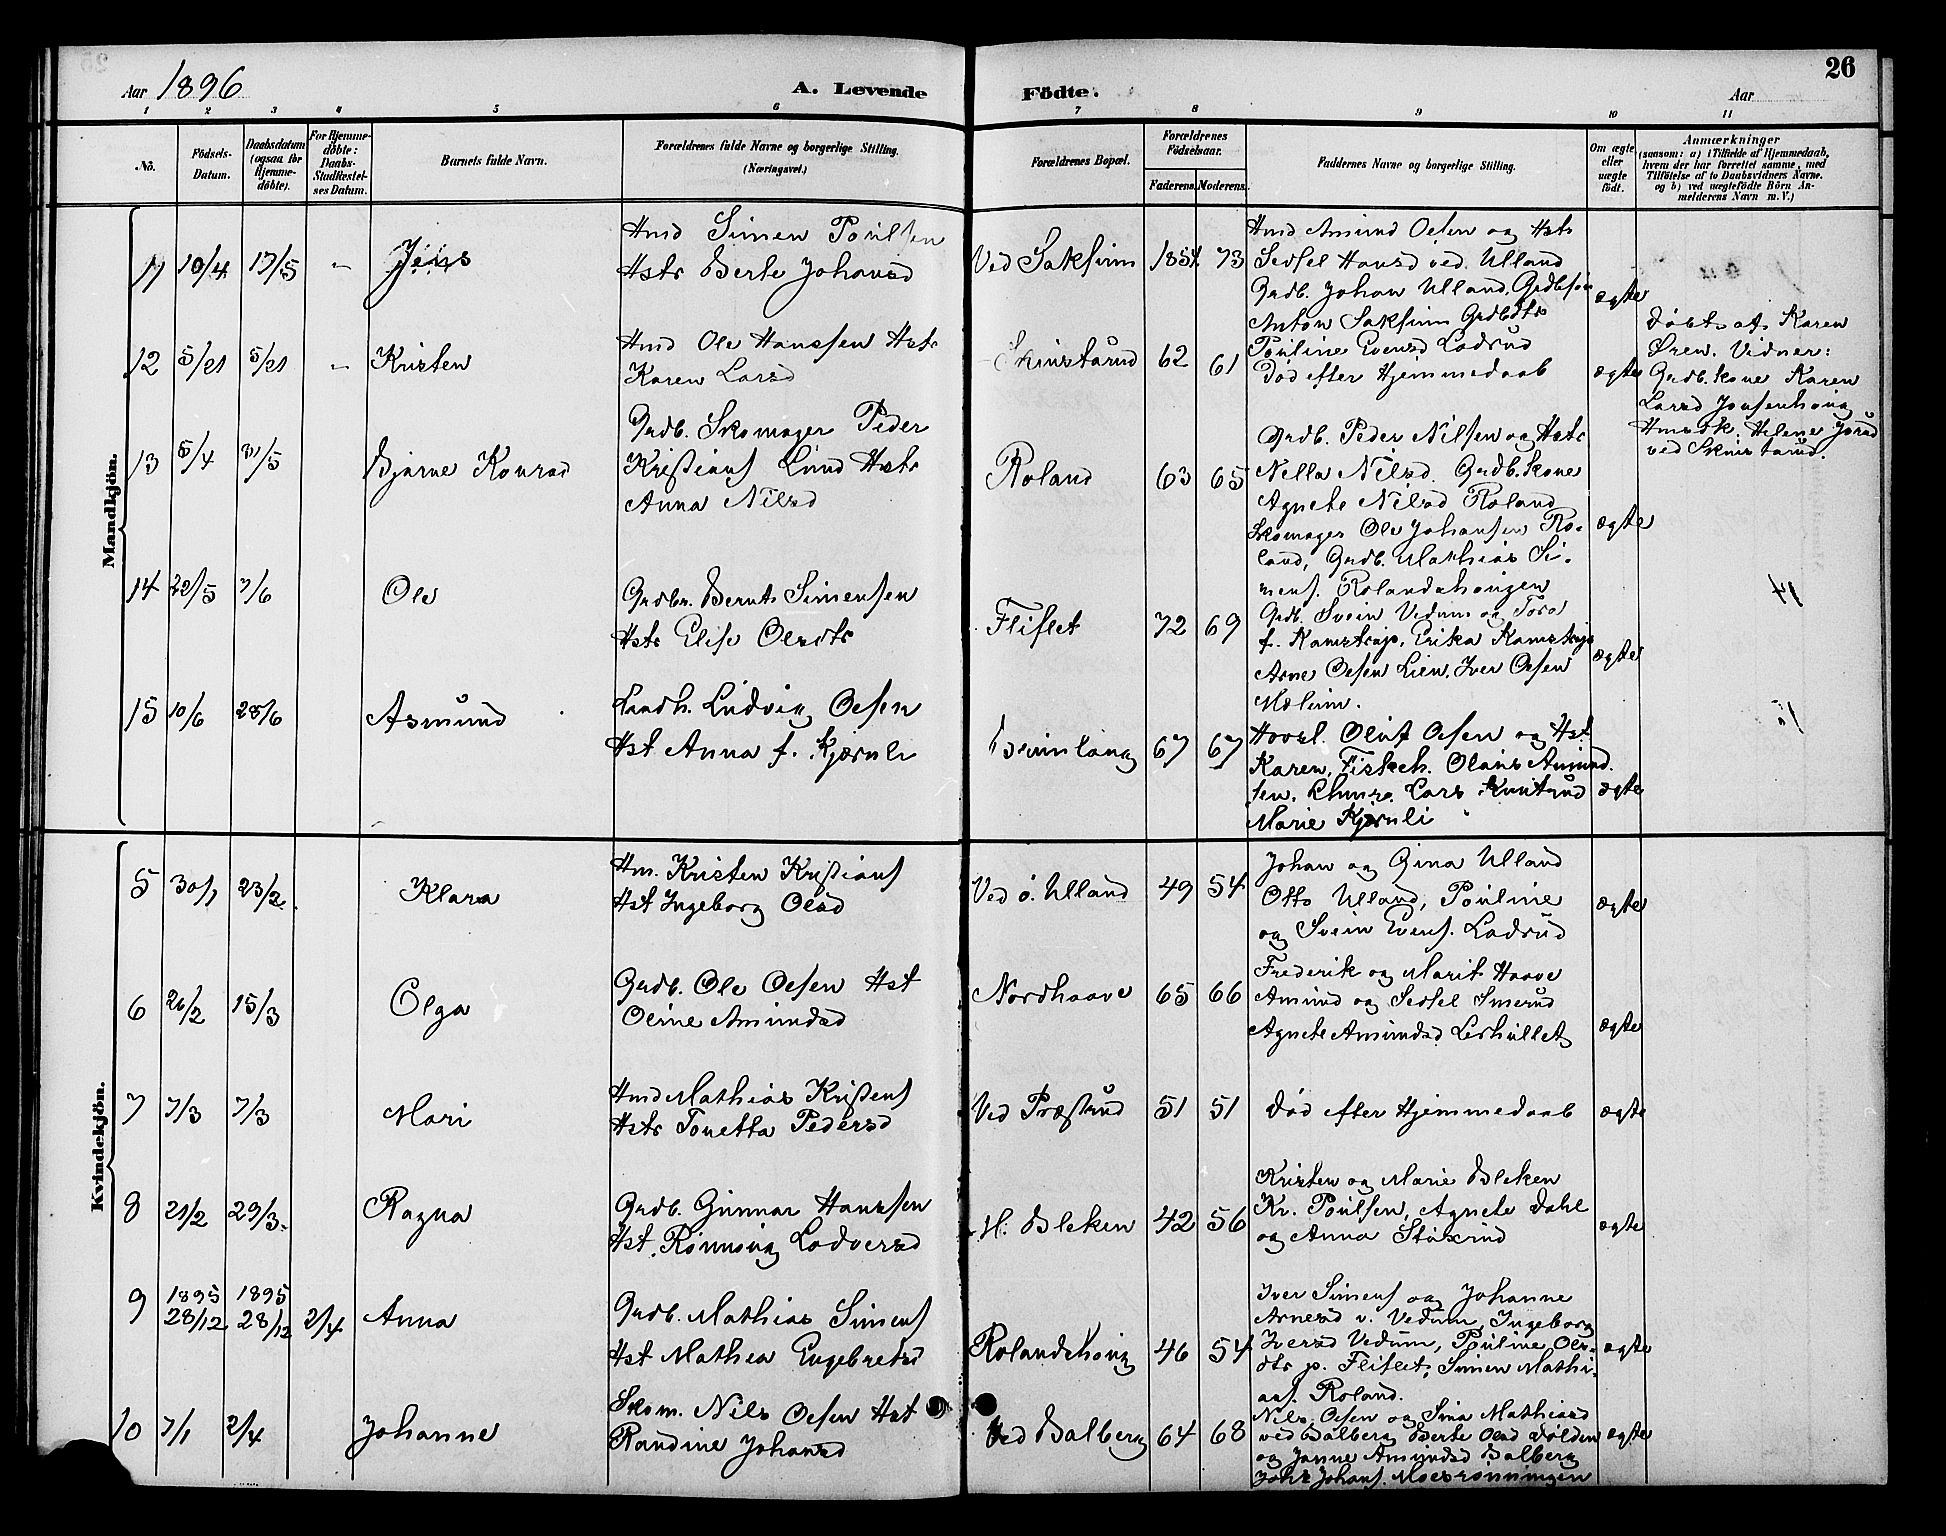 Aar 1896
A. Levende
Födte.
26
Aar
1 2 3 4 5 6 7 8 9 10 11
No.
Födsels-
Datum.
Daabsdatum
(ogsaa for
Hjemme-
döbte).
For Hjemme-
döbte:
Daabs-
Stadfestel-
ses Datum.
Barnets fulde Navn.
Forældrenes fulde Navne og borgerlige Stilling.
(Næringsvei.)
Forældrenes Bopæl.
Forældrenes
Födselsaar.
Faderens. Moderens.
Faddernes Navne og borgerlige Stilling.
Om ægte
eller
uægte
födt.
Anmærkninger
(saasom: a) i Tilfælde af Hjemmedaab,
hvem der har forrettet samme, med
Tilföielse af to Daabsvidners Navne.
og b) ved uægtefödte Börn An-
melderens Navn m. V.)
Mandkjön.
10/4 17/5 Jens
Hmd Simen Poulsen
Hstr Berte Johansd
Ved Saksum 1854 73
Hmd Amund Olsen og Hstr
Sedsel Hansd ved. Ulland
Grdb. Johan Ulland, Grdbsøn
Anton Saksum Grdbdtr
Pouline Evensd Lodrud
ægte
12 Kristen
Hmd Ole Hanssen Hstr
Karen Larsd
Skinstarud 62 61
Død efter Hjemmedaab
ægte
Døbt af Karen
Øren. Vidner:
Grdb. kone Karen
Larsd Jonsenhoug
Hmdsk. Helene
ved Skinstarud.
13 5/4 31/5 Bjarne Konrad
Grdb. Skomager Peder
Kristians Lund Hstr
Anna Nilsd
Roland 63 65
Grdb. Peder Nilsen og Hstr
Nella Nilsd. Grdb. kone
Agnete Nilsd Roland
Skomager Ole Johansen Ro-
land, Grdb. Mathias Si-
mens. Rolandshougen
ægte
14 22/5 7/6 Ole
Grdbr. Bernt Simensen
Hstr Elise Olsdtr
Fliflet 72 69
Grdb. Svein Vedum og Tora
f. Kamstrup, Erika Kamstrup
Arne Olsen Lien, Iver Olsen
Mælum.
ægte
14
15 10/6 28/6 Asmund
Landh. Ludvig Olsen
Hst Anna f. Kjærnli
67 67
Olof Olsen og Hst
Karen, Olaus Amund
sen. Lars
Marie Kjærnli
ægte
15
Kvindekjön.
5 30/1 23/2 Klara
Hm. Kristen Kristians
Hst Ingeborg Olsd
Ved ö. Ulland 49 54
Johan og Gina Ulland
Otto Ulland, Pouline
og Svein Evens. Lodrud
ægte
6 26/2 15/3 Olga
Grdb. Ole Olsen Hst
Oline Amundsd
Nordhaave 65 66
Frederik og Marit Haave
Amund og Sedsel Smerud
Agnete Amundsd Lershullet
ægte
7 7/3 7/3 Mari
Hmd Mathias Kristens
Hstr Tonetta Pedersd
Ved Præstrud 51 51
død efter Hjemmedaab
ægte
8 21/2 29/3 Ragna
Grdb. Gunnar Hanssen
Hst. Rønnoug Lodversd
M. Bleken 42 56
Kristen og Marie Bleken
Kr. Poulsen, Agnete Dahl
og Anna
ægte
9 1895 28/12 1895 28/12 2/4 Anna
Grdb. Mathias Simens
Hst Mathea Engebretsd
Rolandshoug 46 54
Iver Simens og Johanne
Arnesd v. Vedum, Ingeborg
Iversd Vedum, Pouline Ols-
dtr p. Fliflet, Simen Mathi-
as. Roland.
ægte
10 7/1 2/4 Johanne
Skom. Nils Olsen Hst
Randine Johansd
Ved Balberg 64 68
Nils Olsen og Sina Mathiasd
ved Balberg Berte Olsd Volden
og Janne Amundsd Balberg
Johs Johans. Moesrønningen
ægte